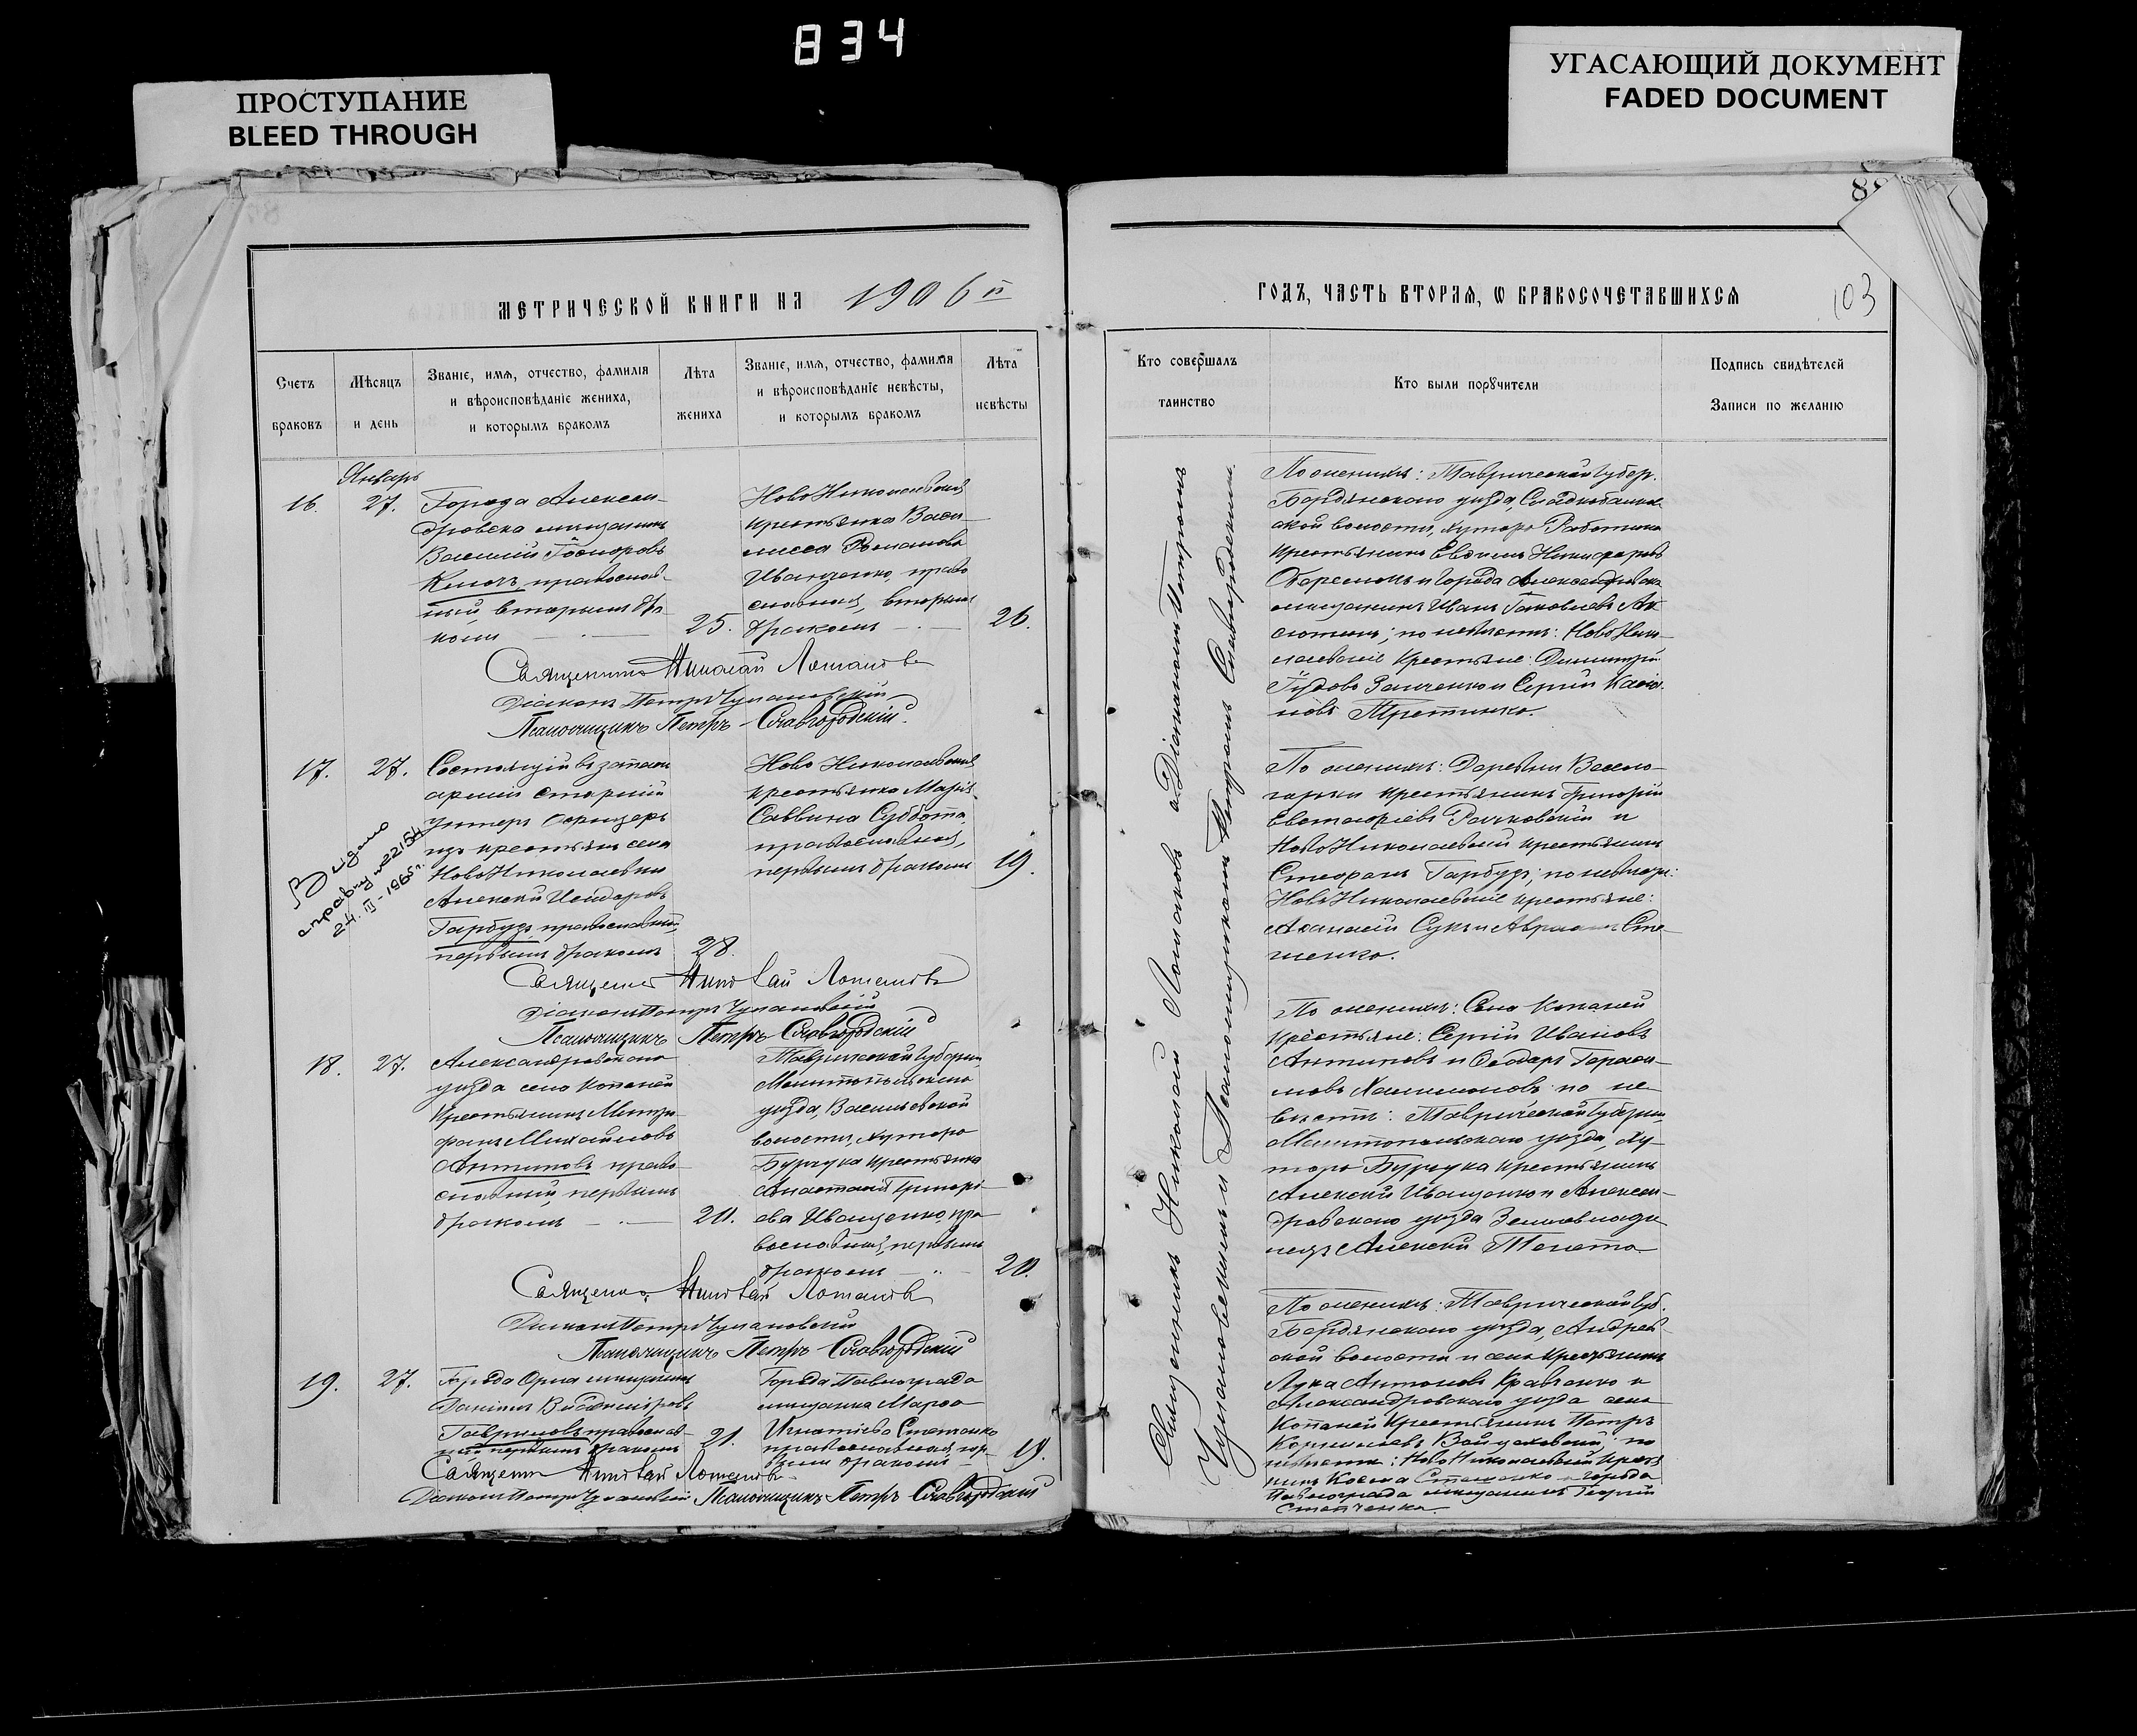 834
ПРОСТУПАНИЕ
BLEED THROUGH
УГАСАЮЩИЙ ДОКУМЕНТ
FADED DOCUMENT
МЕТРИЧЕСКОЙ КНИГИ НА 1906 й
Счетъ браковъ
Мѣсяцъ и день
Званіе, имя, отчество, фамилія
и вѣроисповѣданіе жениха,
и которымъ бракомъ
Лѣта жениха
Званіе, имя, отчество, фамилія
и вѣроисповѣданіе невѣсты,
и которымъ бракомъ
Лѣта невѣсты
Январь
16.
27.
Города Алексан-
дровска мещанинъ
Василій Ѳеодоровъ
Ключъ, православ-
ный, вторымъ бра-
комъ
25.
НовоНиколаевская
крестьянка Васи-
лисса Романова
Иващенко, право
славная, вторымъ
бракомъ
26.
Священникъ Николай
Діаконъ Петръ
Псаломщикъ Петръ Славгородскій
17.
27.
Состоящій въ запасѣ
арміи старшій
унтеръ офицеръ
изъ крестьянъ села
НовоНиколаевки
Алексѣй
Гарбузъ, православный,
первымъ бракомъ
28.
Ново Николаевская
крестьянка Марія
Саввина Суббота,
православная,
первымъ бракомъ
19.
Выдано
справку №22154
24. III - 1965 г.
Священникъ Николай
Діаконъ Петръ
Псаломщикъ Петръ Славгородскій
18.
27.
Александровскаго
уѣзда села Копаней
крестьянинъ Митро-
фанъ Михайловъ
Антиповъ, право-
славный, первымъ
бракомъ
20.
Таврической Губерніи,
Мелитопольскаго
уѣзда, Васильевской
волости, хутора
Бурчука крестьянка
Анастасія Григорі-
ева Иващенко, пра-
вославная, первымъ
бракомъ
20.
Священникъ Николай
Діаконъ Петръ
Псаломщикъ Петръ Славгородскій
19.
27.
Города Орла мещанинъ
Даніилъ
Гавриловъ, православ-
ный, первымъ бракомъ
21.
Города Павлограда
мещанка Марѳа
Игнатіева Степченко
православная, пер-
вымъ бракомъ
19.
Священникъ Николай
Діаконъ Петръ
Псаломщикъ Петръ Славгородскій
ГОДЪ, ЧАСТЬ ВТОРАЯ, Ѡ БРАКОСОЧЕТАВШИХСЯ
103
Кто совершалъ таинство
Кто были порꙋчители
Подпись свидѣтелей
Записи по желанію
Священникъ Николай съ Діакономъ Петромъ
и Псаломщикомъ Петромъ Славгородскимъ.
По женихѣ: Таврической Губер.
Бердянскаго уѣзда,
ской волости, хутора
крестьянинъ Евѳимъ Никифоровъ
и города Александровска
мещанинъ Иванъ Яковлевъ Ак
; по невѣстѣ: НовоНико-
лаевскіе крестьяне: Димитрій
и Сергій
По женихѣ: Деревни Весело-
горки крестьянинъ Григорій
Евстаѳіевъ Рачковскій и
НовоНиколаевскій крестьянинъ
Стефанъ Гарбузъ; по невѣстѣ:
НовоНиколаевскіе крестьяне:
Аѳанасій
По женихѣ: Села Копаней
крестьяне: Сергій Ивановъ
Антиповъ и Ѳеодоръ Гараси-
мовъ; по не-
вѣстѣ: Таврической Губерніи,
Мелитопольскаго уѣзда, ху-
тора Бурчука крестьянинъ
Алексѣй Иващенко и Алексан-
дровскаго уѣзда Землевладѣ-
лецъ Алексѣй Телета
По женихѣ: Таврической Губ.
Бердянскаго уѣзда, Андреев-
ской волости и села крестьянинъ
Лука Антоновъ Кравченко и
Александровскаго уѣзда села
Копаней крестьянинъ Петръ
по
невѣстѣ: НовоНиколаевскій крестья
нинъ Косма и города
Павлограда мещанинъ Георгій
Степченко.